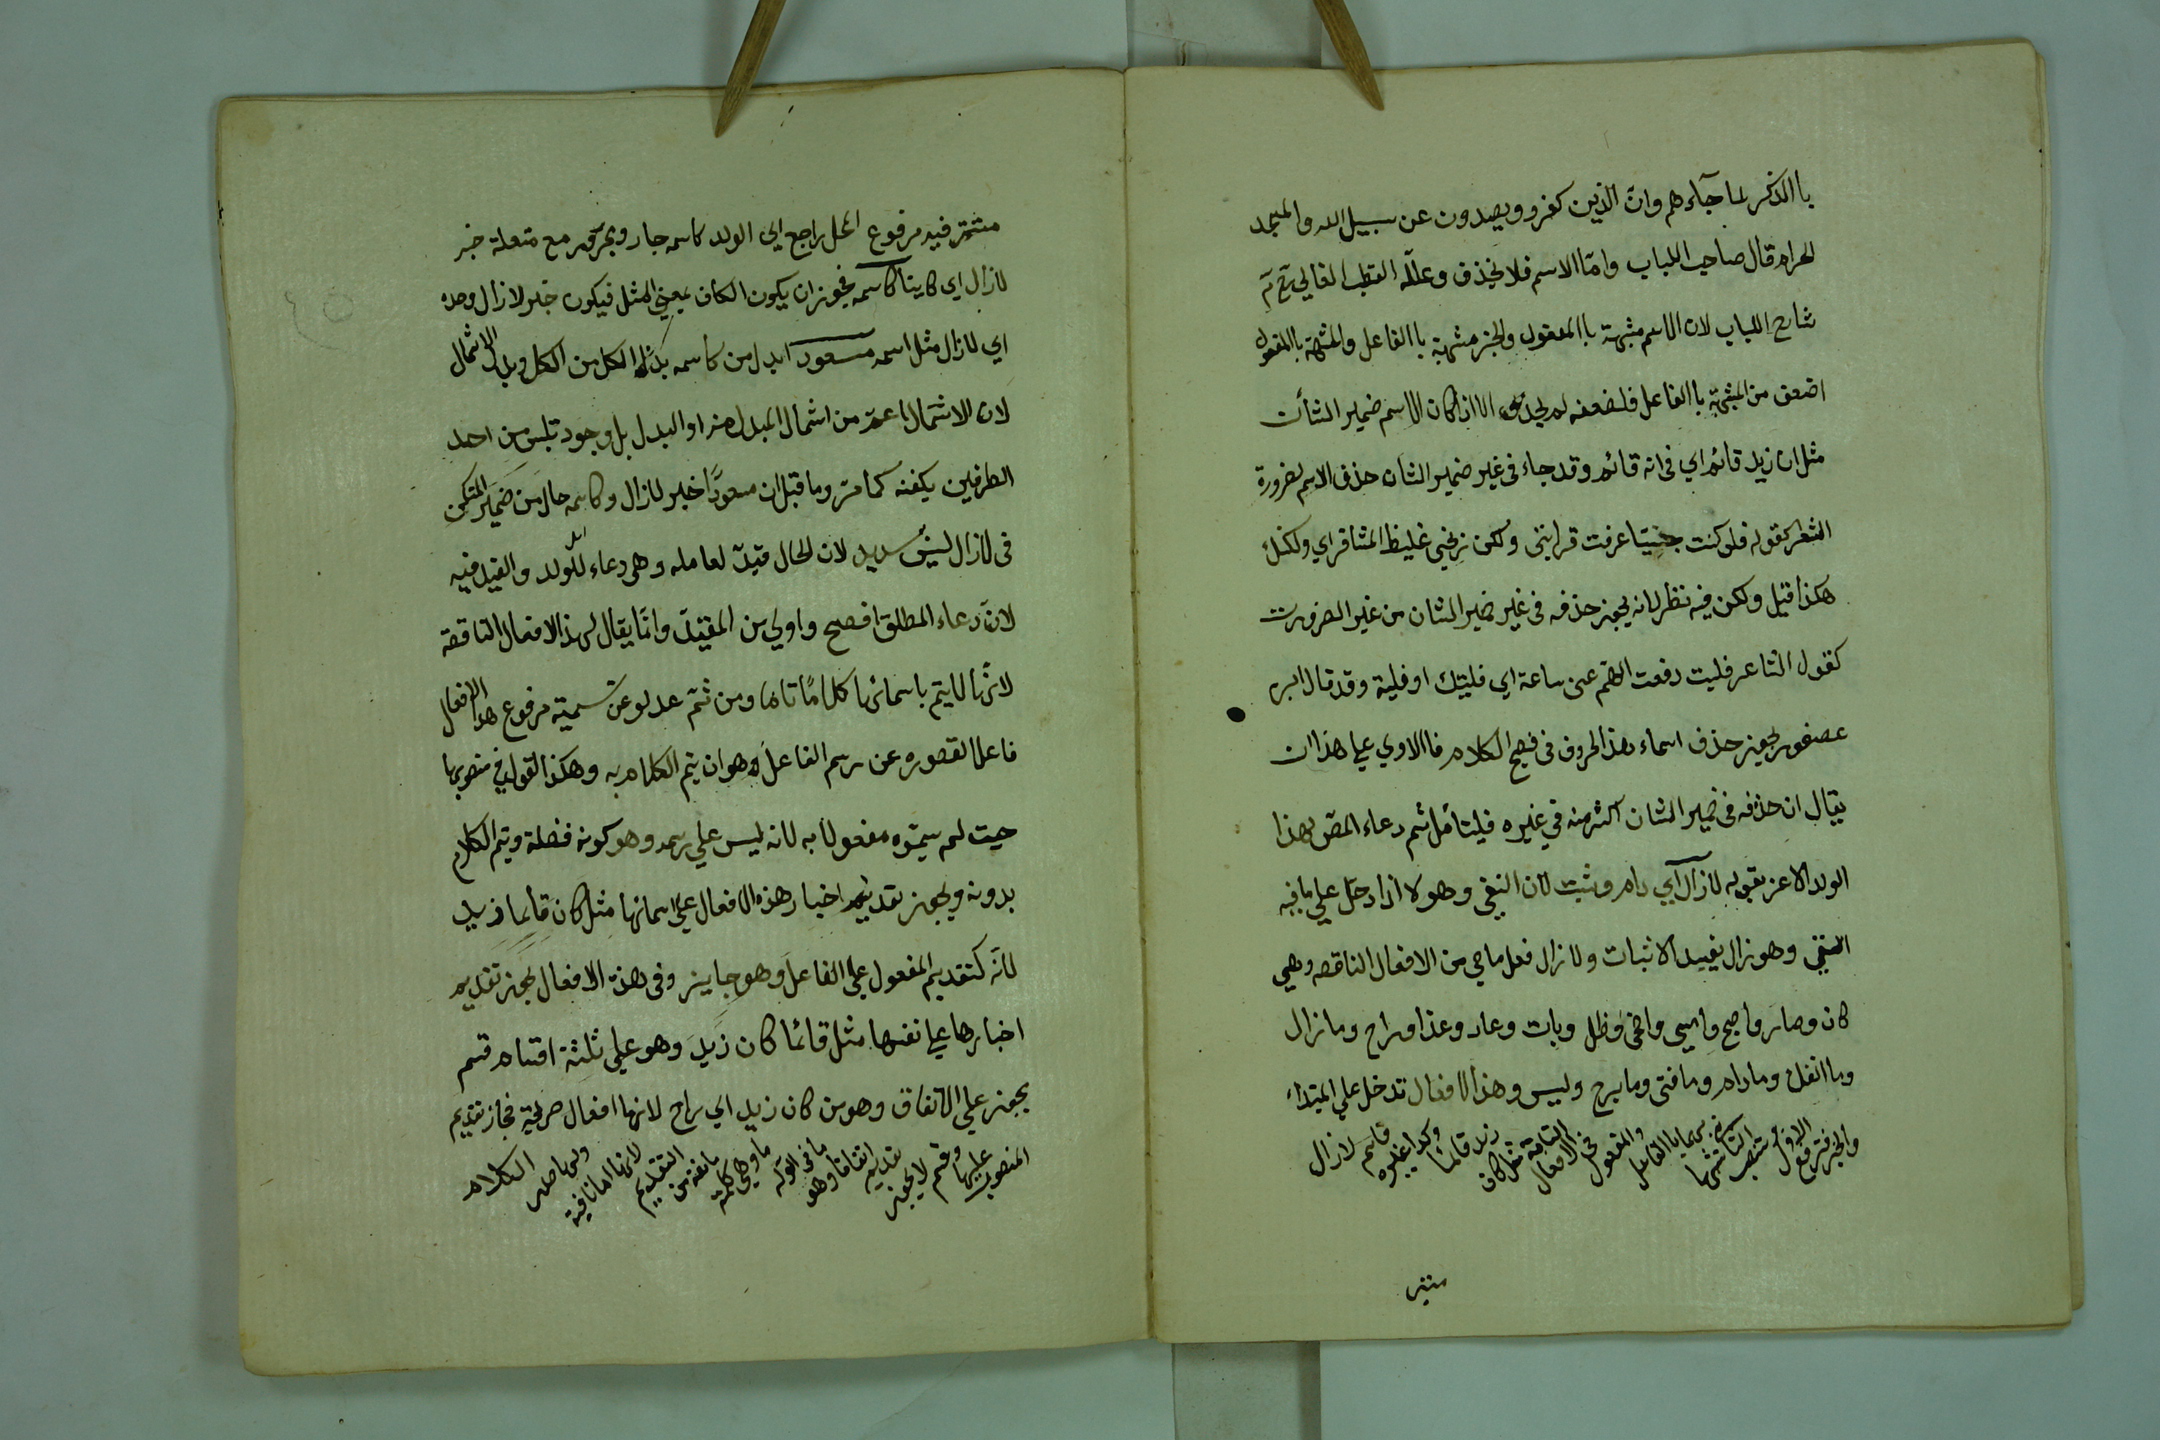 باالذكر لما جآءهم وانّ الذين كفرو ويصدون عن سبيل الله والمسجد
الحرام قال صاحب اللباب وامّا الاسم فلا يحذف وعلّله القطب الفالي
شارح اللباب لان الاسم مشبهة باالمفعول والخبر مشبهة باالفاعل والمشبهة باالمفعول
اضعف من المشبهة باالفاعل فلضعفه لم يحذف الا اذا كان الاسم ضمير الشأن
مثل ان زيد قائم اي في انه قائم وقد جاء في غير ضمير الشان حذف الاسم لضرورة
الشعر كقوله فلو كنت ضبيّا عرفت قرابتي ولكن زنجي غليظ المشافر اي ولكنك
هكذا قيل ولكن فيه نظر لانه يجوز حذفه في غير ضمير الشان من غير الضرورت
كقول الشاعر فليت دفعت الهم عنى ساعة اي فليتك او فليته وقد قال ابن
عصفور يجوز حذف اسماء هذ الحروف في فصيح الكلام فاالاولي علي هذا ان
يقال ان حذفه في ضمير الشان اكثر منه في غيره فليتأمل ثم دعاء المصّ لهذا
الولد الاعز بقوله لازال آي دام وثبت لان النفي وهو لا اذا دخل علي ما فيه
النفي وهو زال يفيد الاثبات ولا زال فعل ماضي من الافعال الناقصه وهي
كان وصار واصبح وامسى واضحى وظل وبات وعاد وغدا وراح ومازال
وما انفك ومادام ومافتى ومابرح وليس وهذ الافعال تدخل علي المبتداء
والخبر فترفع الاول وتنصب الثاني تشبيها باالفاعل والمفعول في الافعال التامة مثل كان زيد قائمًا وكذا غيره قاسم لازال
مستتر
مستتر فيه مرفوع المحل راجع الي الولد كاسمه جار ومجرور مع متعلقه خبر
لازال اي كاينا كاسمه يجوز ان يكون الكاف بمعني المثل فيكون خبر لازال وحده
اي لازال مثل اسمه مسعود ابدل من كاسمه بدل الكل من الكل وبدل الاشتمال
لان الاشتمال اعمّ من اشتمال المبدل منه او البدل بل وجود تلبس من احد
الطرفين يكفنه كما مرّ وما قيل ان مسعودًا خبر لازال وكاسمه حال من ضمير المتكن
في لازال ليس بسديد لان الحال قيدّ لعامله وهى دعاء للولد والقيد فيه
لانّ دعاء المطلق افصح واولي من المقيّد وانمّا يقال لهذ الافعال الناقصة
لانّها لايتم باسمائها كلامًا تاما ومن ثمّ عدلو عن تسميته مرفوع هذ الافعال
فاعلا لقصوره عن رسم الفاعل وهو ان يتم الكلام به وهكذا القول في منصوبها
حيت لم يسمّوه مفعولا به لانه ليس علي رسمه وهو كونه فضلة ويتم الكلام
بدونه ويجوز تقديم اخبار هذه الافعال علي اسمائها مثل كان قائما زيد
لانّه كتقديم المفعول علي الفاعل وهو جايز وفي هذة الافعال يجوز تقديم
اخبارها علي نفسها مثل قائما كان زيد وهو علي ثلثة اقسام قسم
يجوز علي الاتفاق وهو من كان زيد الي راح لانها افعال صريحة فجاز تقديم
المنصوب عليها وقسم لا يجوز تقديمه اتفاقا وهو ما في اوله ما وهي كلمة مانعة من التقديم لانها اما نافية ولها صدر الكلام